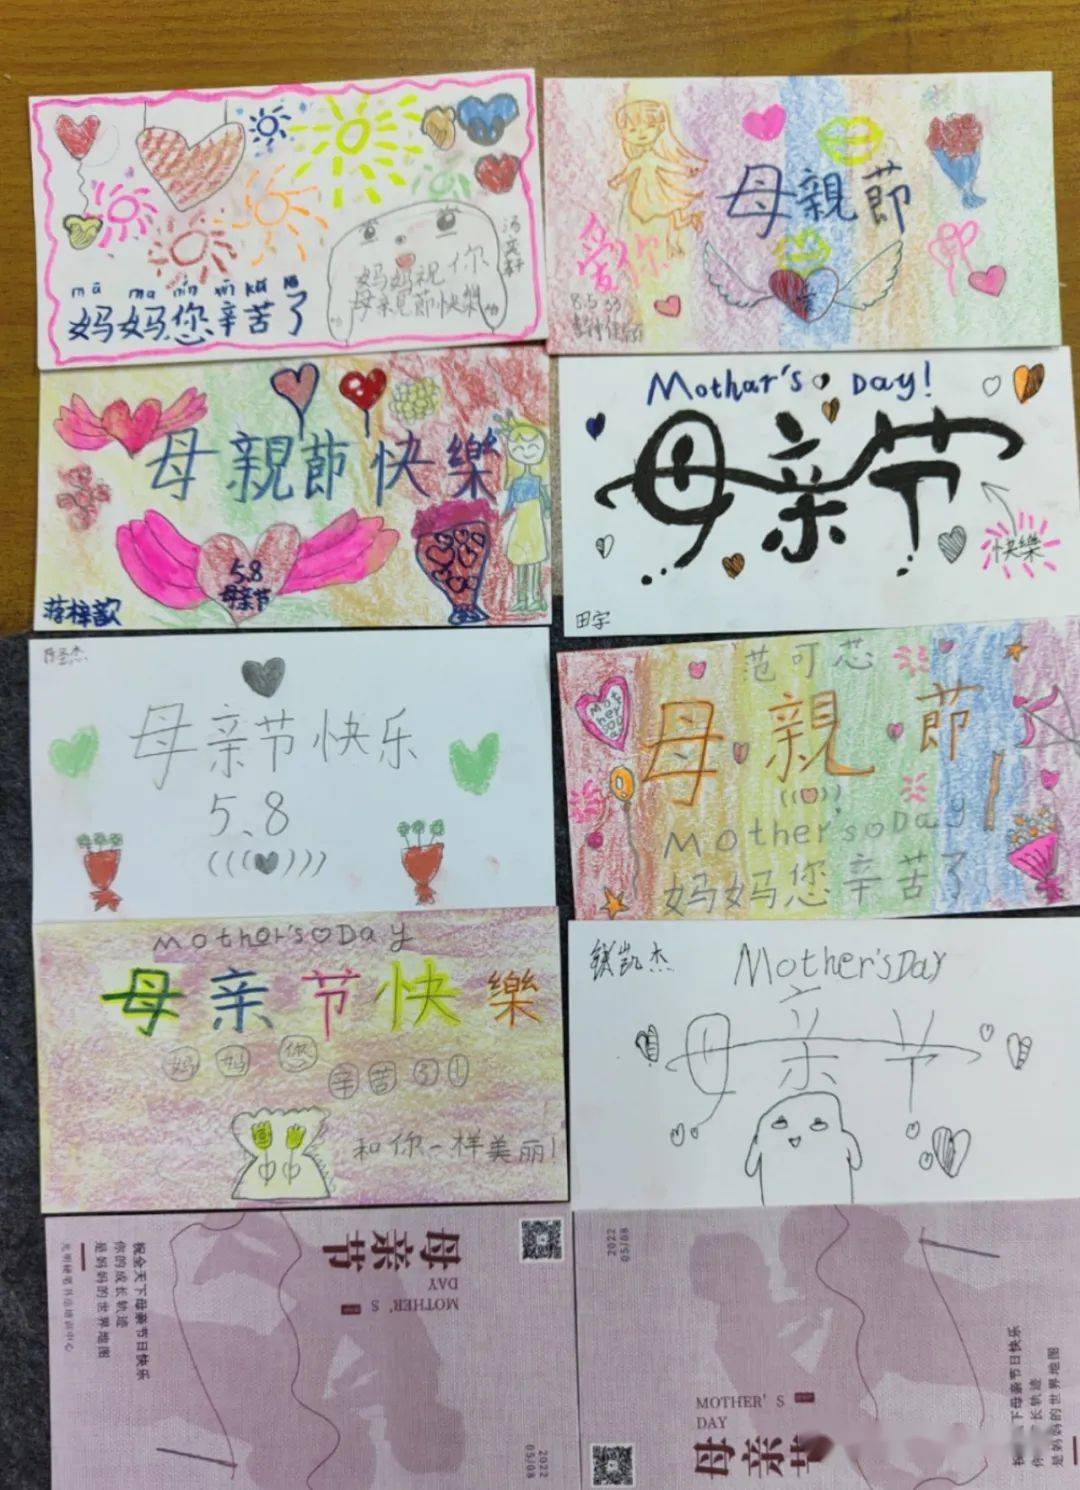 mā ma nín xīn kǔ
妈妈您辛苦了
妈妈祝你
母亲見節快樂
母親節
爱你
母親節快樂
5.8
母亲节
蒋梓歆
Mothar's Day!
母亲节
快樂
田宇
母亲节快乐
5、8
范可芯
母親節
Mother's Day
妈妈您辛苦了
Mother's Day
母亲节快樂
妈妈您辛苦了!
和你一样美丽!
凯杰
Mother's DAY
母亲节
母亲节
MOTHER'S
DAY
祝全天下母亲节日快乐
你的成长轨迹
是妈妈的世界地图
光明硬笔书法培训中心
2022
05/08
2022
05/08
MOTHER'S
DAY
母亲节
下母亲节日快乐
长轨迹
是妈妈的世界地图